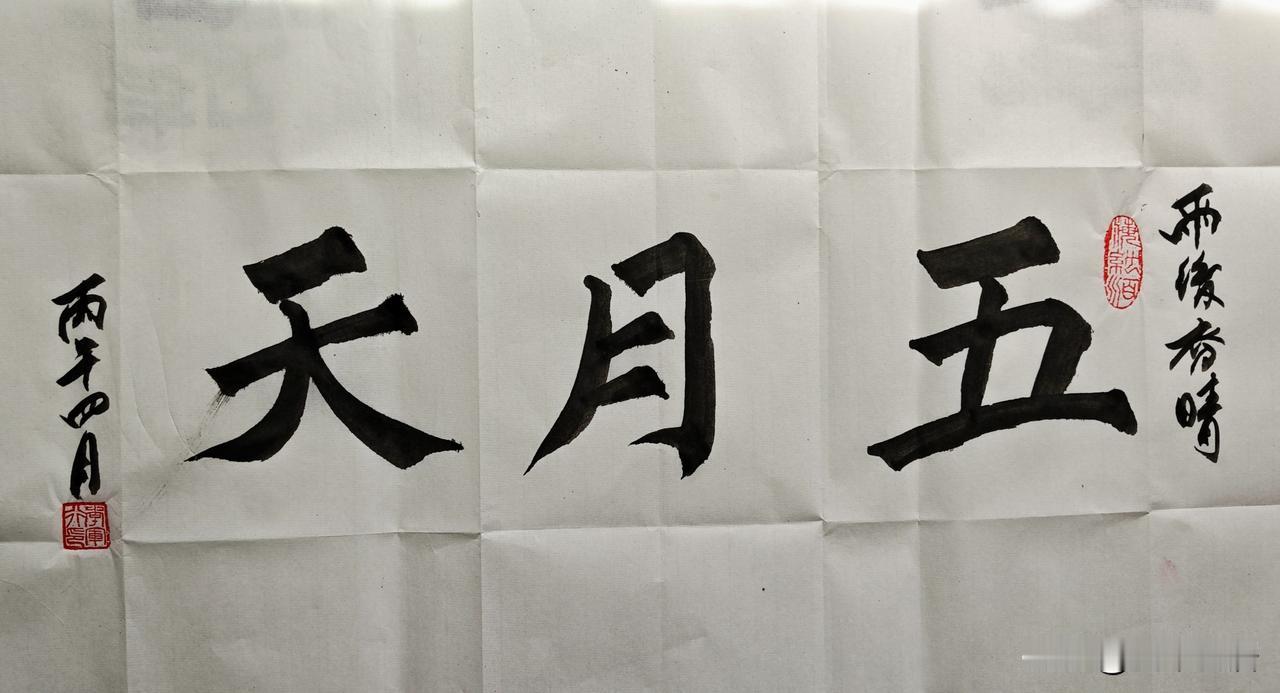 雨後春晴
五月天
丙午四月